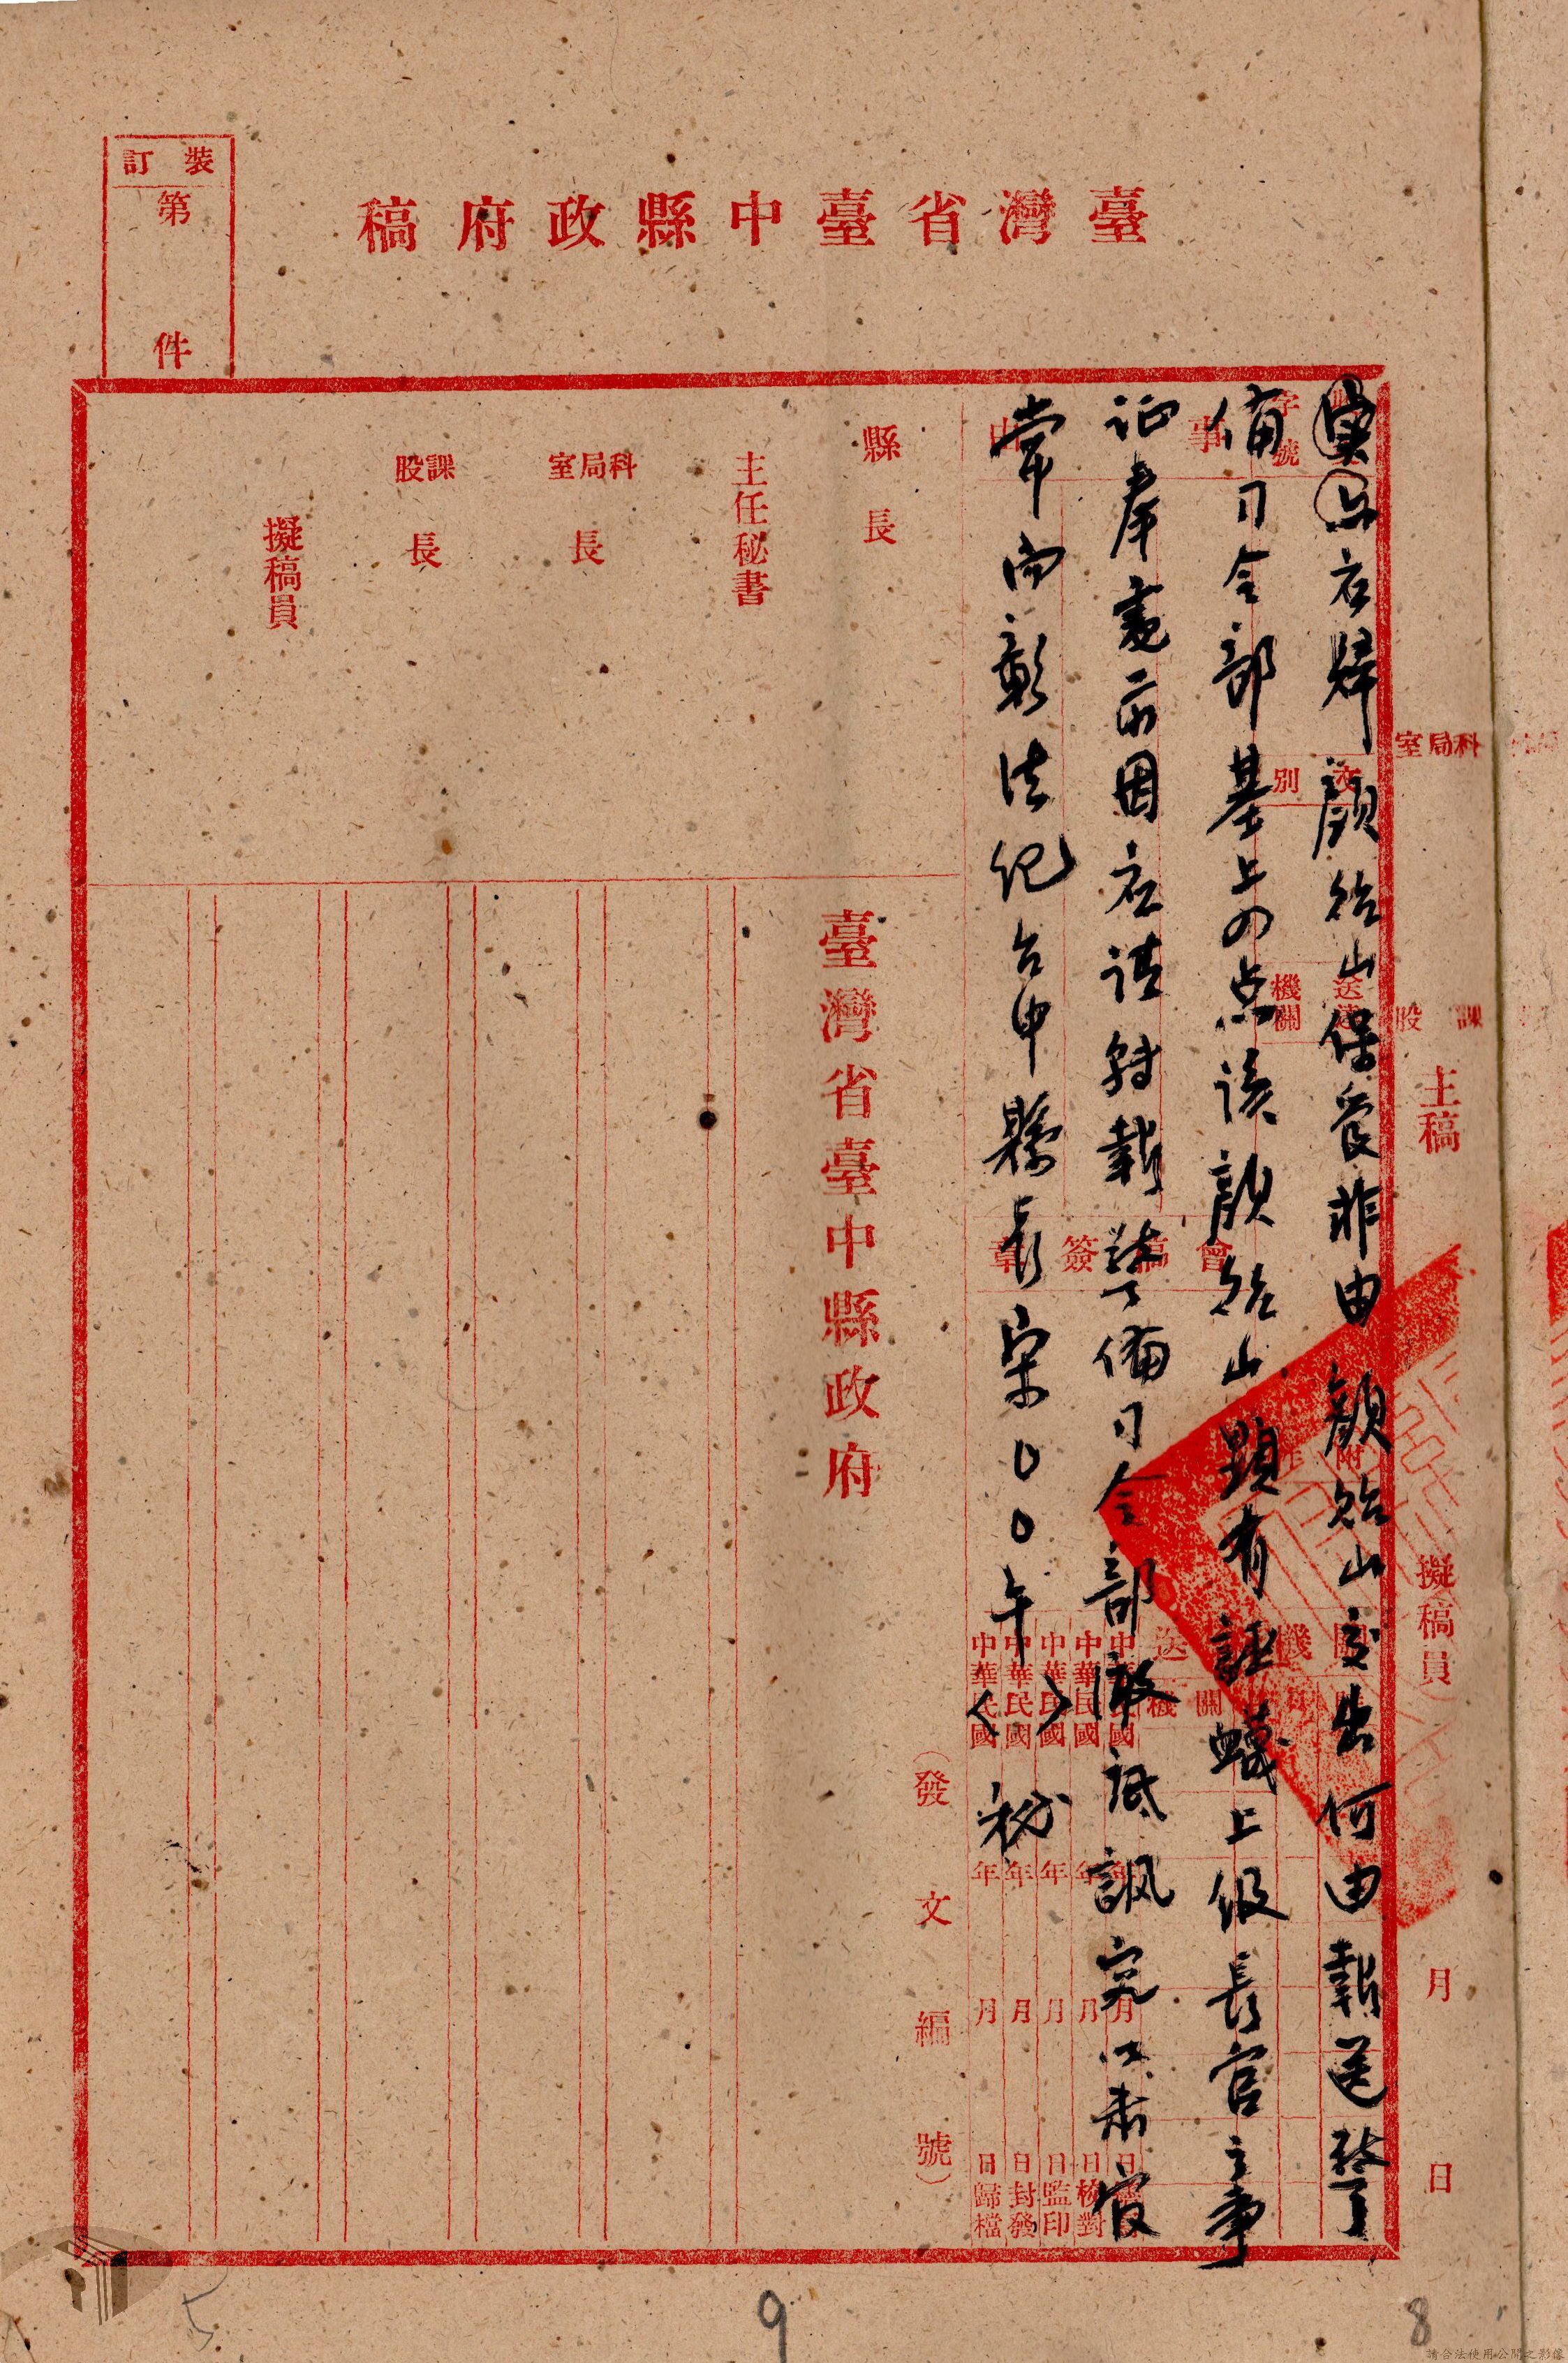 臺灣省臺中縣政府稿
裝訂
第 件
衣歸顏貽山保管非由顏貽山交出何由報送警
備司令部基上の点該顏貽山顯有誣衊上級長官之事
证奉電前因在請转報警備司令部澈底訊究以肅官
常而彰法纪台中縣長宋〇〇午〈 〉秘
字號
事由
文別
送達機關
附件
會稿簽章
中華民國 年 月 日
中華民國 年 月 日校對
中華民國 年 月 日監印
中華民國 年 月 日封發
中華民國 年 月 日歸檔
縣長
主任秘書
科局室長
課股長
擬稿員
臺灣省臺中縣政府
(發文編號)
科局室
課股
主稿
擬稿員
月 日
5
9
8
請合法使用公開之影像